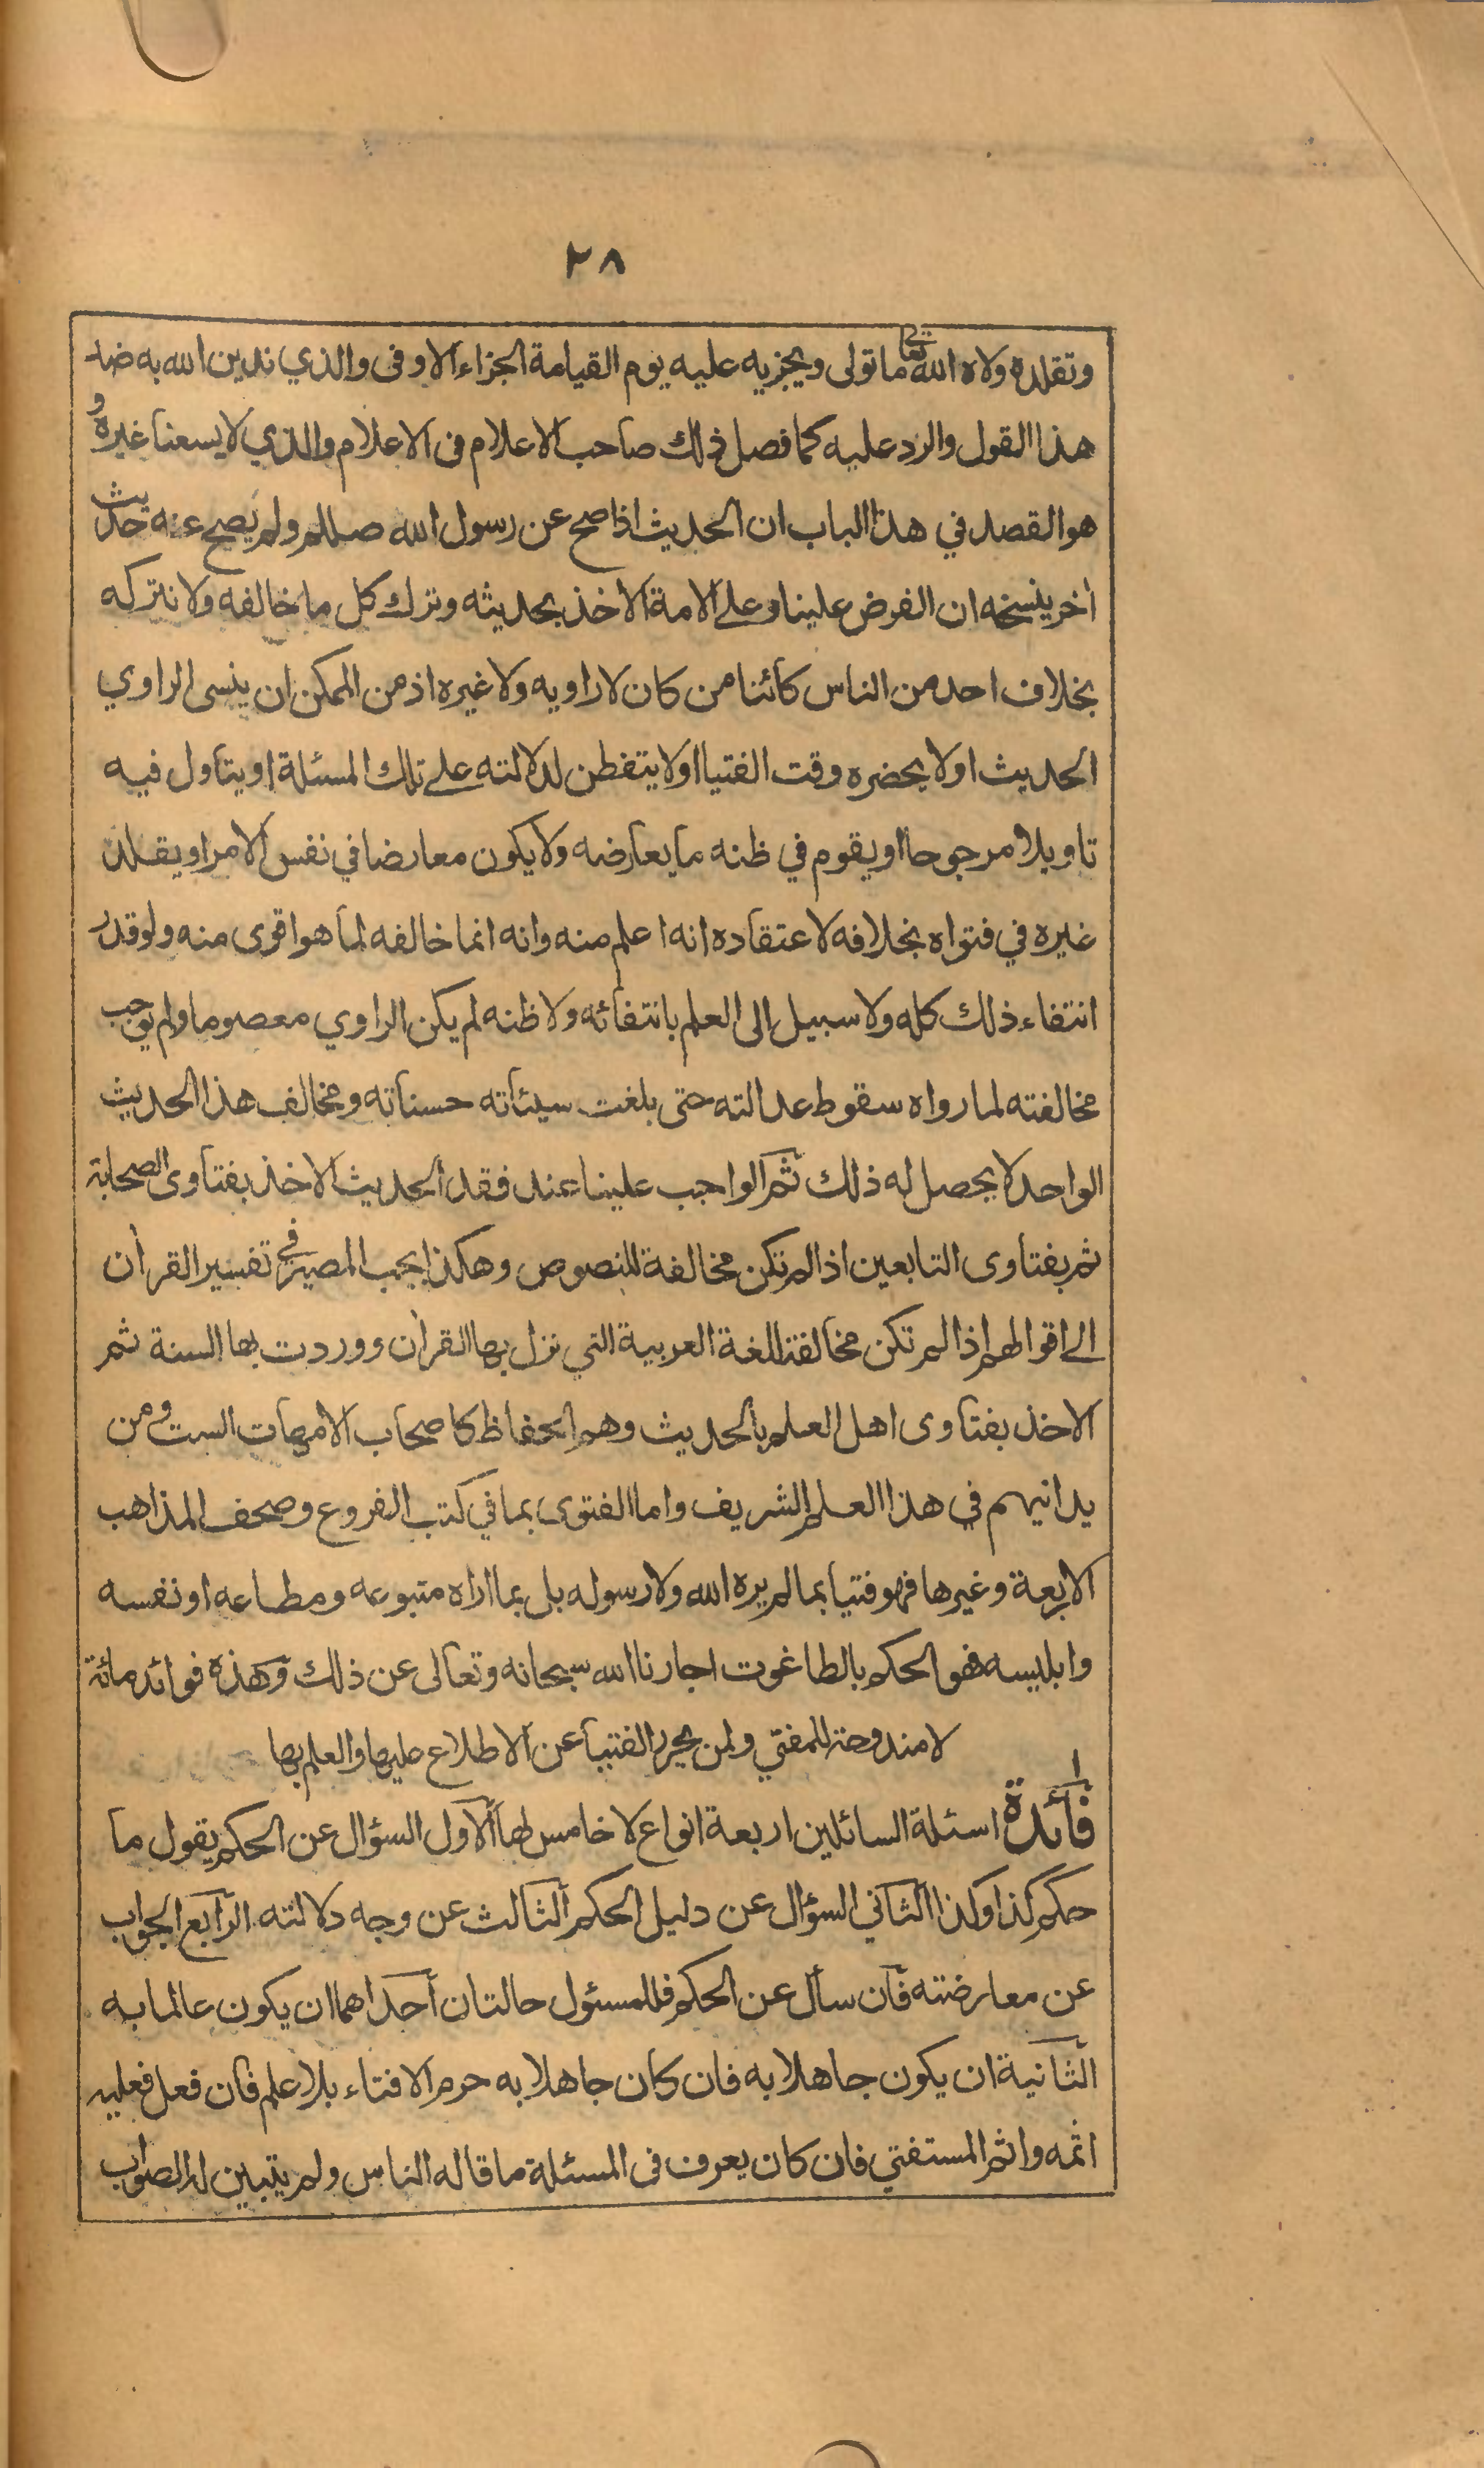 ٢٨
وتقلده ولاه الله تعا ما تولى ويجزيه عليه يوم القيامة الجزاء الاوفى والذي ندين الله به ضد
هذا القول والرد عليه كما فصل ذلك صاحب الاعلام فى الاعلام والذي لا يسعنا غيره و
هو القصد في هذا الباب ان الحديث اذا صح عن رسول الله صللم ولم يصح عنه حديث
أخر ينسخه ان الفرض علينا وعلى الامة الاخذ بحديثه وترك كل ما خالفه ولا نتركه
بخلاف احد من الناس كائنا من كان لا راويه ولا غيره اذ من الممكن ان ينسى الراوي
الحديث او لا يحضره وقت الفتيا او لا يتفطن لدلالته على تلك المسئلة او يتاول فيه
تاويلا مرجوحا او يقوم في ظنه ما يعارضه ولا يكون معارضا في نفس الامر او يقلد
غيره في فتواه بخلافه لاعتقاده انه اعلم منه وانه انما خالفه لما هو اقوى منه ولو قدر
انتفاء ذلك كله ولا سبيل الى العلم بانتفائه ولا ظنه لم يكن الراوي معصوما ولم يوجب
مخالفته لما رواه سقوط عدالته حتى بلغت سيئاته حسناته ومخالف هذا الحديث
الواحد لا يحصل له ذلك ثم الواجب علينا عند فقد الحديث الاخذ بفتاوى الصحابة
ثم بفتاوى التابعين اذا لم تكن مخالفة للنصوص وهكذا يجب المصير في تفسير القرأن
الى اقوالهم اذا لم تكن مخالفة للغة العربية التي نزل بها القرأن ووردت بها السنة ثم
الاخذ بفتاوى اهل العلم بالحديث وهم الحفاظ كاصحاب الامهات الست ومن
يدانيهم في هذا العلم الشريف واما الفتوى بما في كتب الفروع وصحف المذاهب
الاربعة وغيرها فهو فتيا بما لم يره الله ولا رسوله بل بما اراه متبوعه ومطاعه او نفسه
وابليسه فهو الحكم بالطاغوت اجارنا الله سبحانه وتعالى عن ذلك وهذه فوائد مائة
لا مندوحة للمفتي ولمن يحرر الفتيا عن الاطلاع عليها والعلم بها
١
فائدة اسئلة السائلين اربعة انواع لا خامس لها الاول السؤال عن الحكم يقول ما
حكم كذا وكذا الثاني السؤال عن دليل الحكم الثالث عن وجه دلالته الرابع الجواب
عن معارضته فان سأل عن الحكم فللمسئول حالتان احداهما ان يكون عالما به
الثانية ان يكون جاهلا به فان كان جاهلا به حرم الافتاء بلا علم فان فعل فعليه
اثمه واثم المستفتي فان كان يعرف فى المسئلة ما قاله الناس ولم يتبين له الصواب